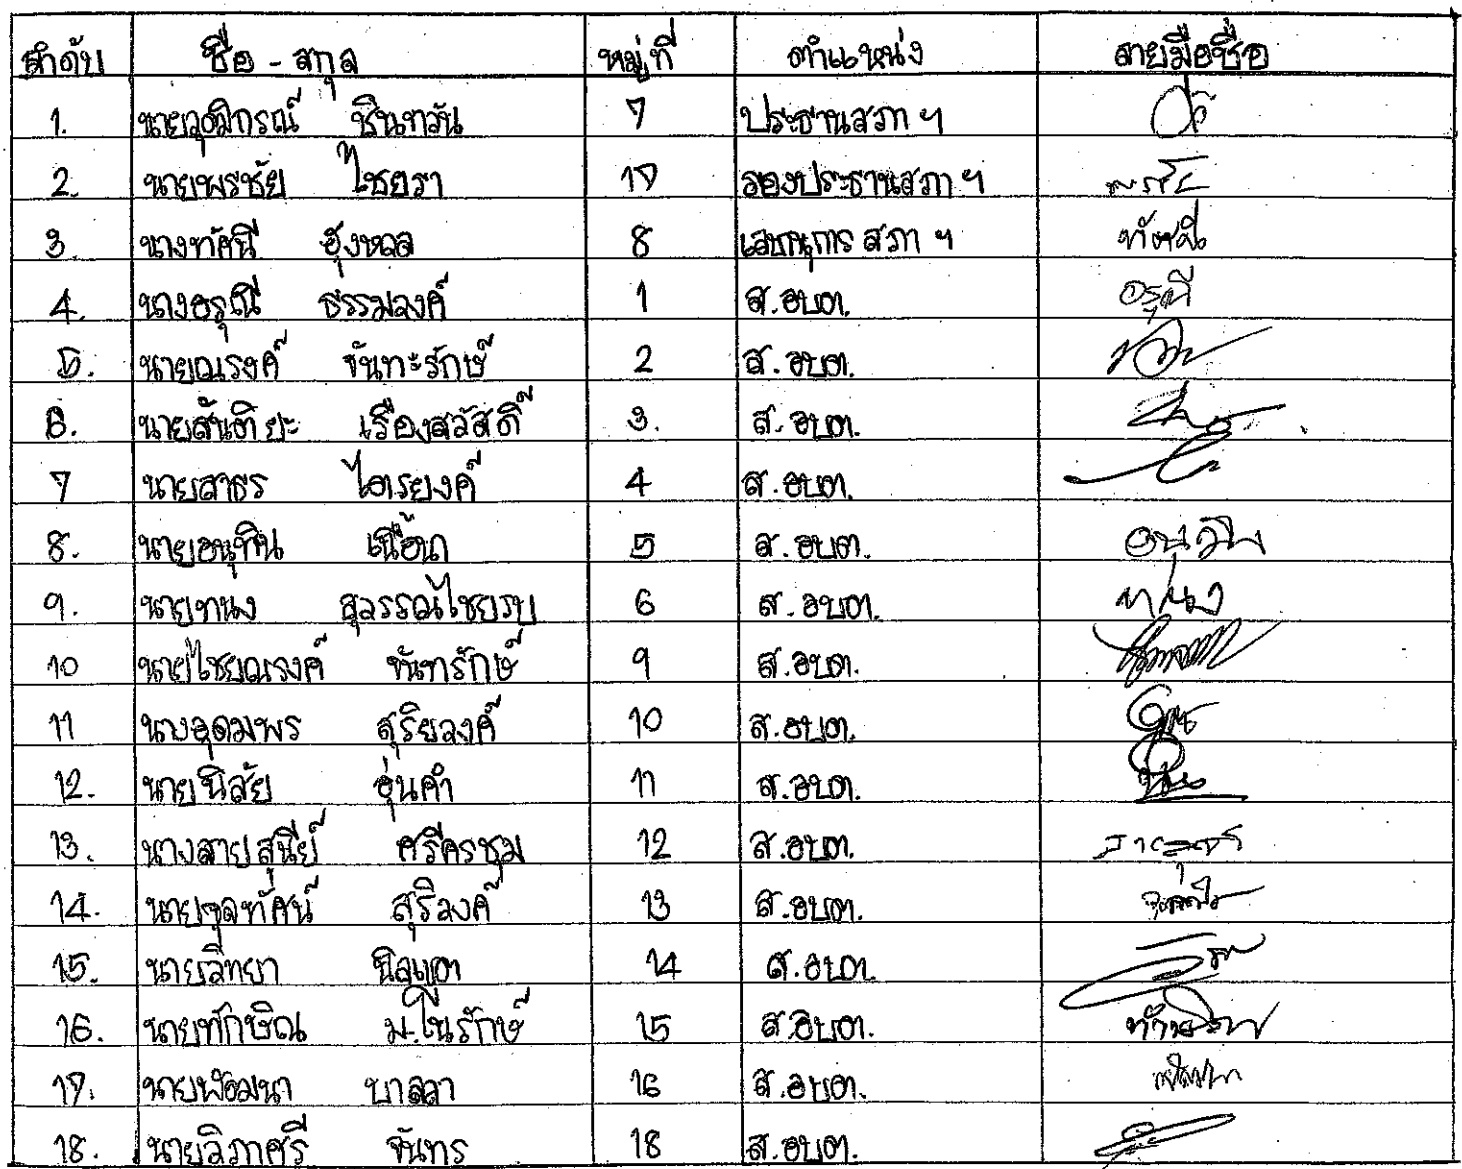 ลำดับ ชื่อ - สกุล หมู่ที่ ตำแหน่ง ลายมือชื่อ
1. นายวุฒิกรณ์ ชินทวัน 7 ประธานสภา ฯ
2. นายพรชัย ไชยรา 17 รองประธานสภา ฯ พรชัย
3. นางทัศนี ฮุงหวล 8 เลขานุการ สภา ฯ ทัศนี
4. นางอรุณี ธรรมวงค์ 1 ส.อบต. อรุณี
5. นายณรงค์ จันทะรักษ์ 2 ส.อบต.
6. นายสันติยะ เรืองสวัสดิ์ 3. ส.อบต.
7 นายสาธร ไตรยงค์ 4 ส.อบต.
8. นายอนุทิน เนื้อนา 5 ส.อบต.
9. นายทนง สุวรรณไชยรบ 6 ส.อบต. ทนง
10 นายไชยณรงค์ จันทรักษ์ 9 ส.อบต.
11 นางอุดมพร สุริยวงค์ 10 ส.อบต.
12. นายนิสัย อุ่นคำ 11 ส.อบต.
13. นางสายสุนีย์ ศรีครชุม 12 ส.อบต.
14. นายจุลทัศน์ สุริวงค์ 13 ส.อบต.
15. นายวิทยา นิลแต 14 ส.อบต.
16. นายทักษิณ มะโนรักษ์ 15 ส.อบต.
17. นายพัฒนา บาลลา 16 ส.อบต.
18. นายวิภาศรี จันทร 18 ส.อบต.